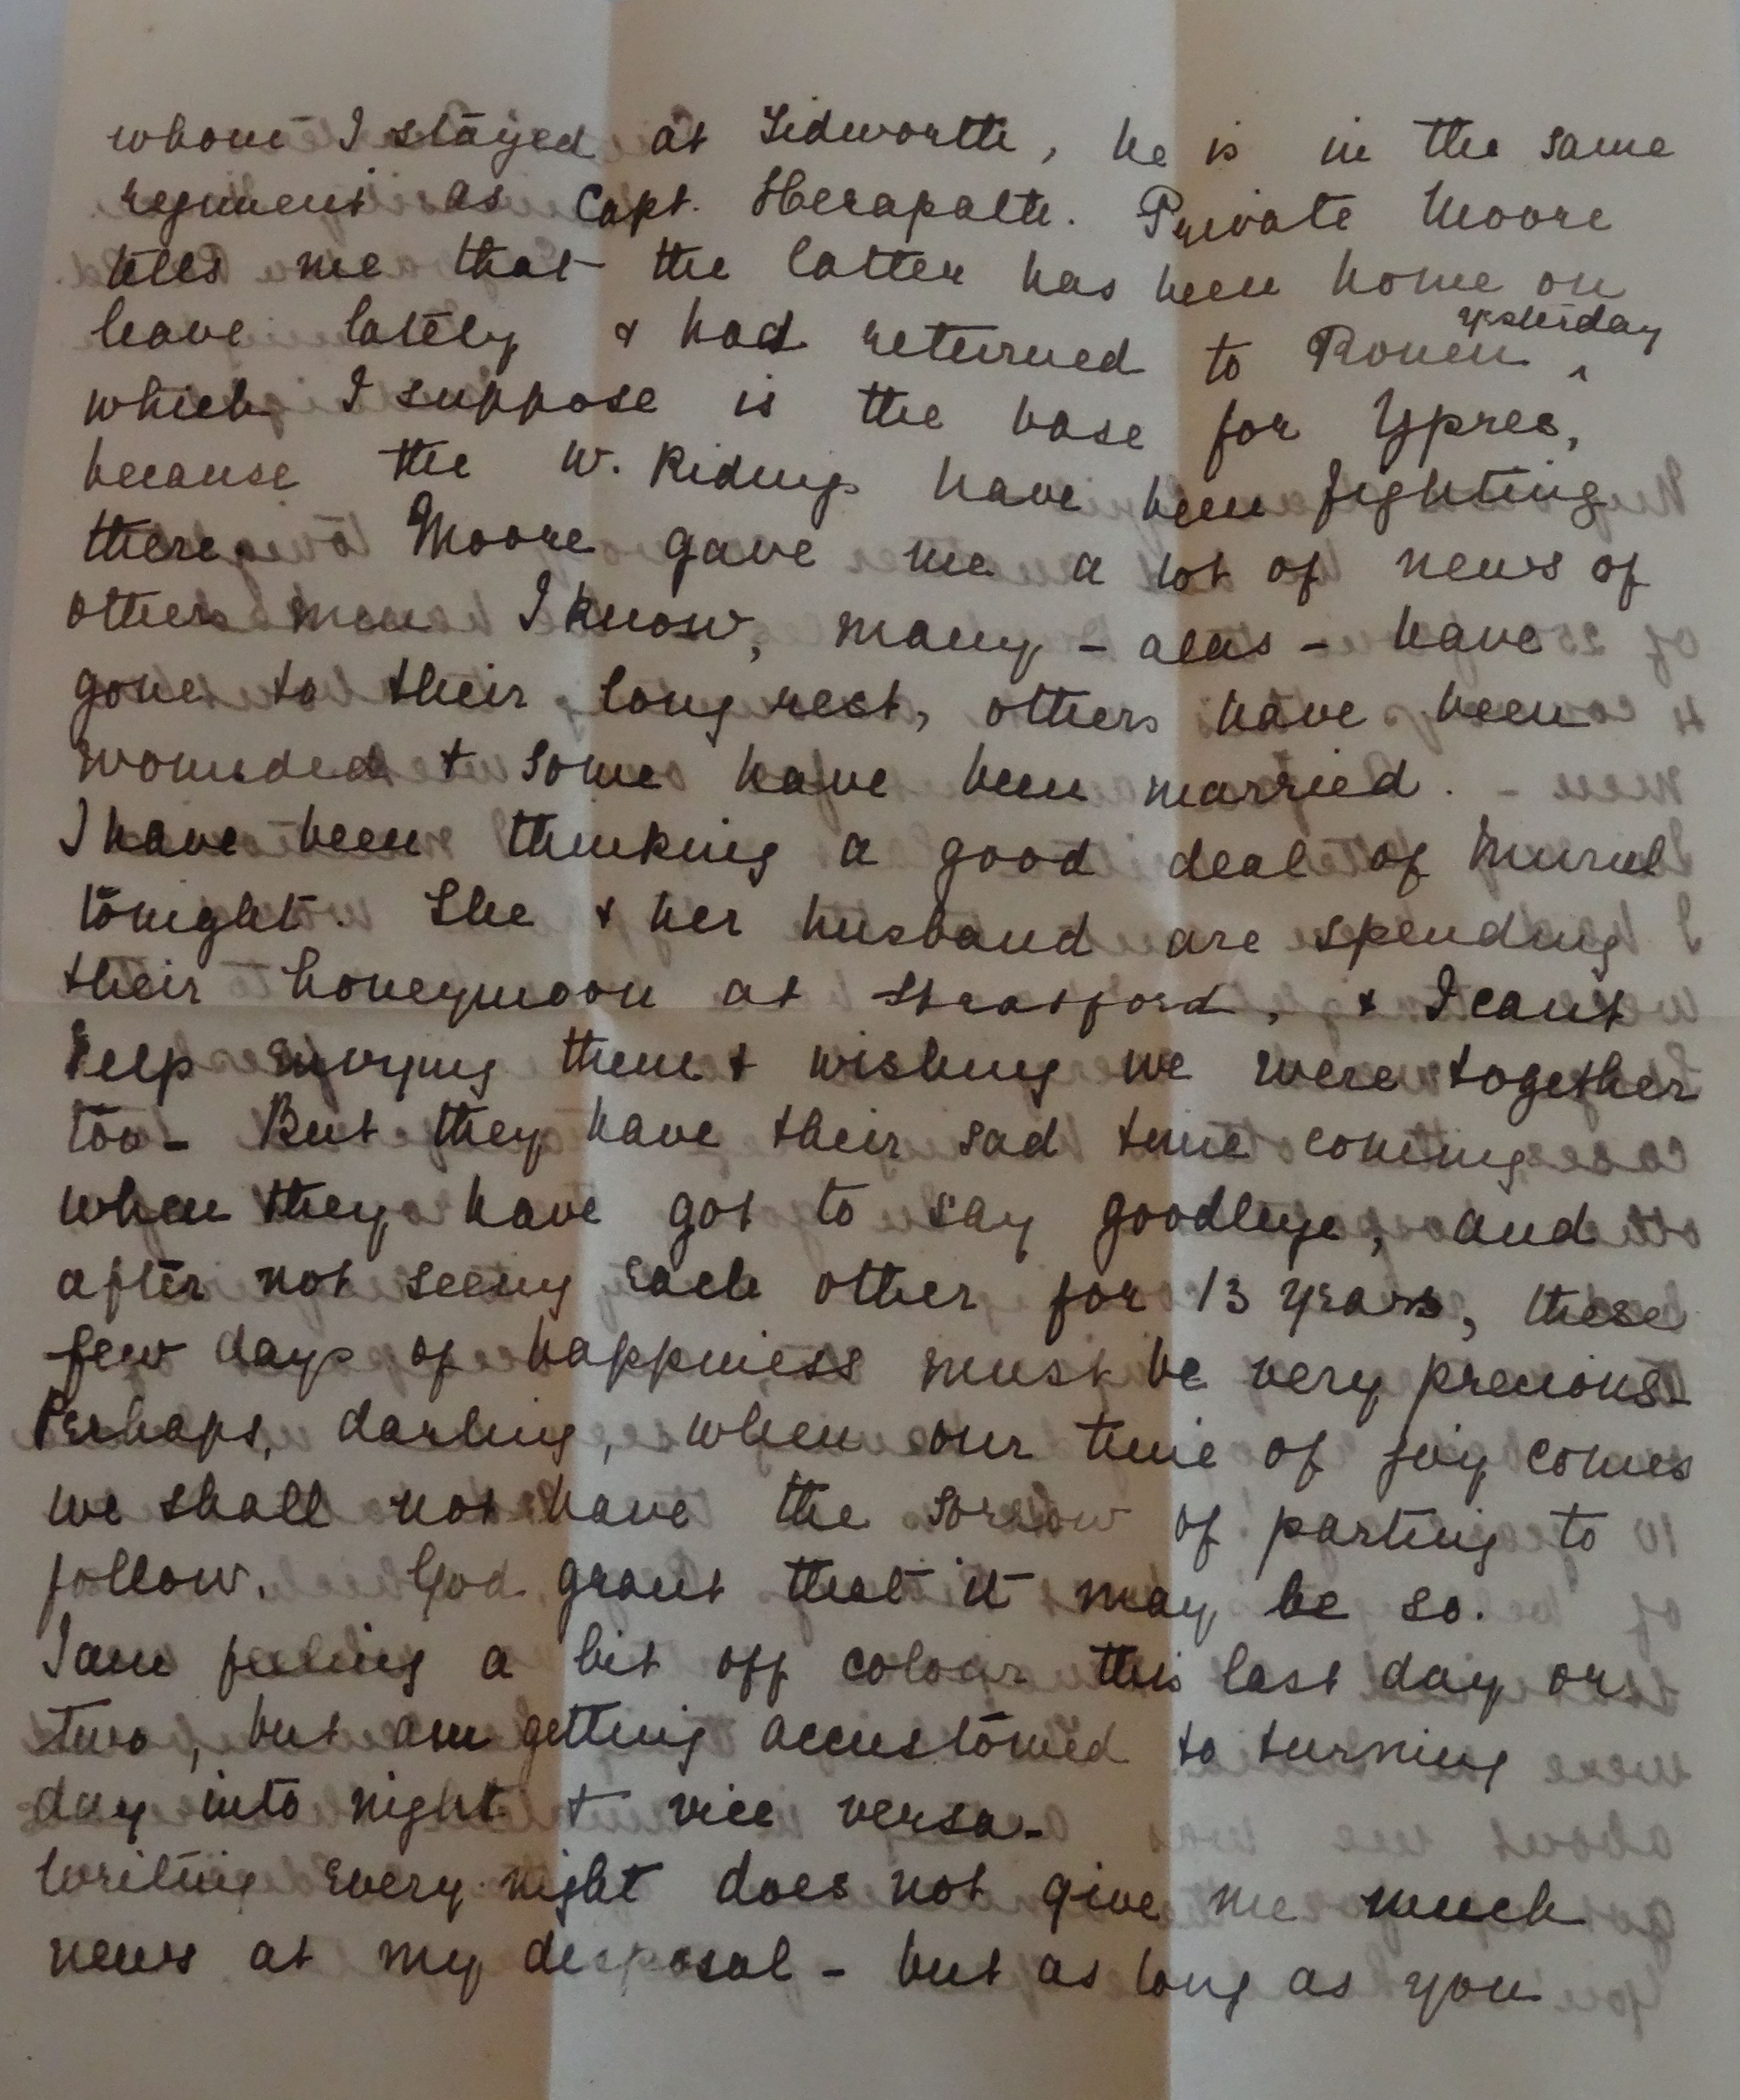 whom I stayed at Tidworth, he is in the same
regiment as Capt. Herapath. Private Moore
tells me that the latter has been home on
leave lately & had returned to Rouen yesterday
which I suppose is the base for Ypres,
because the W. Ridings have been fighting
there. Moore gave me a lot of news of
others men I know, many - alas - have
gone to their long rest, others have been
wounded & some have been married.
I have been thinking a good deal of Muriel
tonight. She & her husband are spending
their honeymoon at Stratford, & I cant
help envying them & wishing we were together
too - But they have their sad time coming
when they have got to say goodbye, and
after not seeing each other for 13 years, these
few days of happiness must be very precious -
Perhaps, darling, when our time of joy comes
we shall not have the sorrow of parting to
follow. God grant that it may be so.
I am feeling a bit off colour this last day or
two, but am getting accustomed to turning
day into night & vice versa -
Writing every night does not give me much
news at my disposal - but as long as you